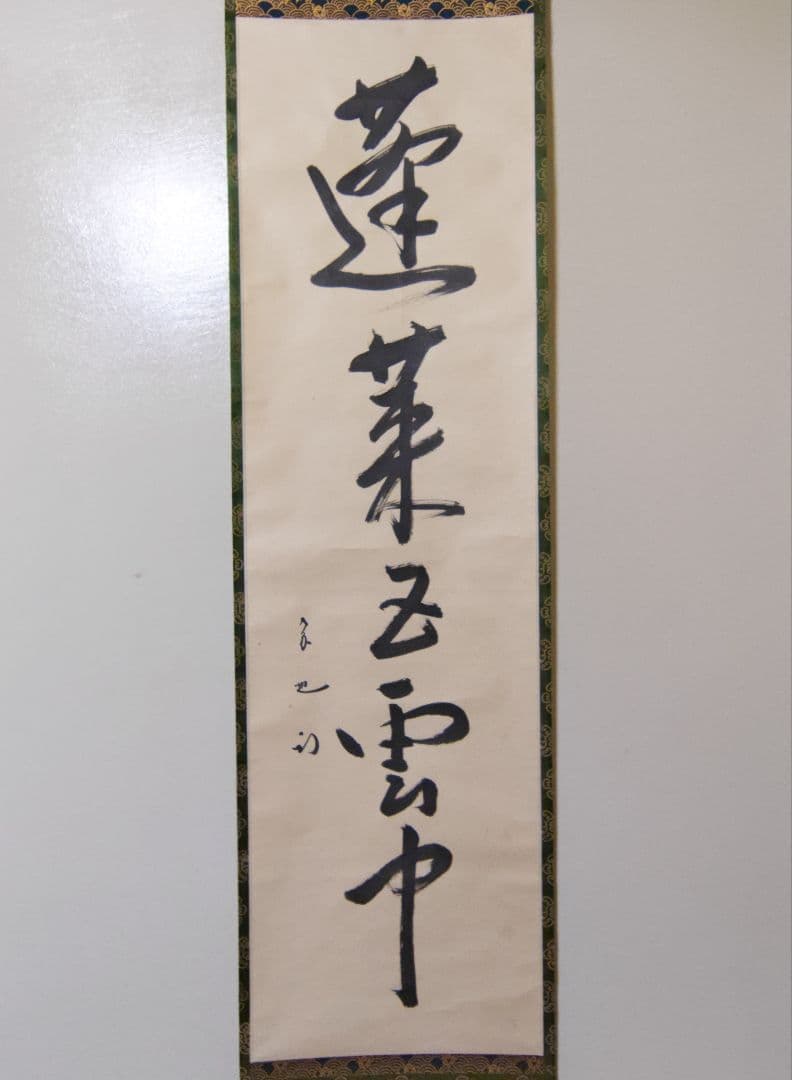 蓬莱五雲中